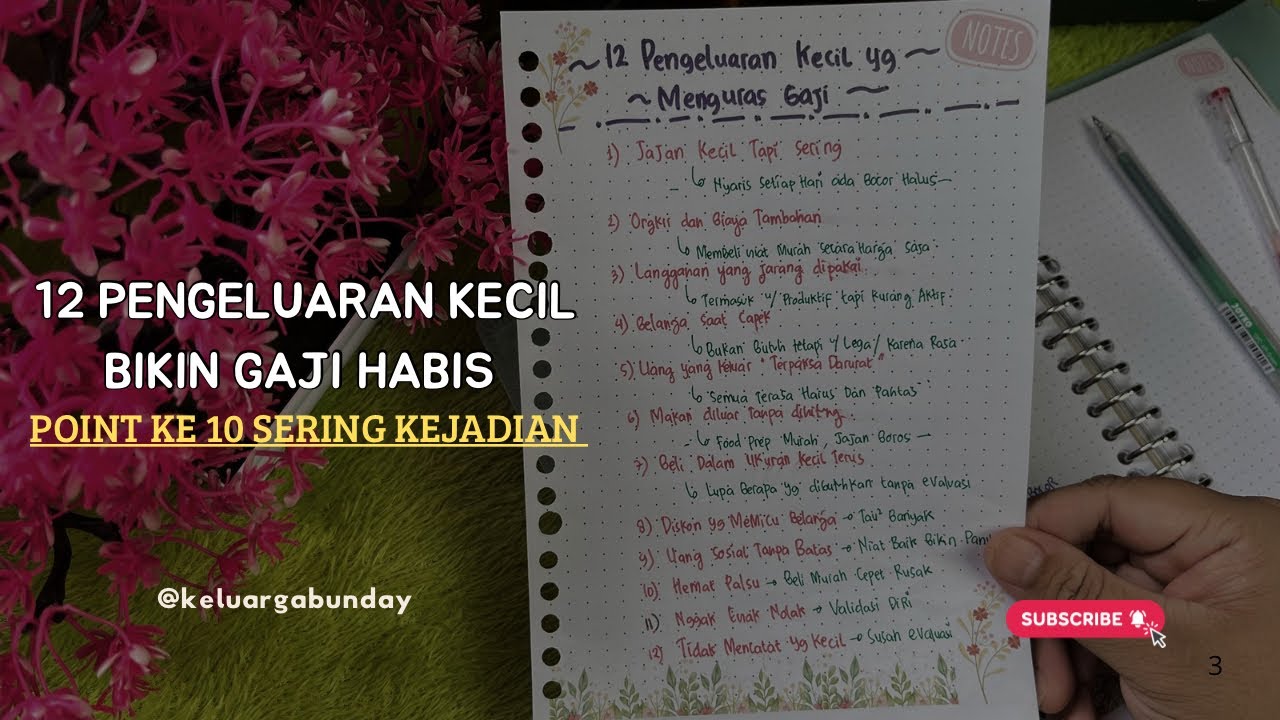 12 PENGELUARAN KECIL
BIKIN GAJI HABIS
POINT KE 10 SERING KEJADIAN
@keluargabunday
NOTES
~ 12 Pengeluaran Kecil yg ~
~ Menguras Gaji ~
1) Jajan Kecil Tapi Sering
↳ Nyaris Setiap Hari ada Bocor Halus
2) Ongkir dan Biaya Tambahan
↳ Membeli niat Murah setara Harga saja
3) Langganan yang jarang dipakai
↳ Termasuk y/ Produktif tapi Kurang Aktif
4) Belanja Saat Capek
↳ Bukan Butuh tetapi y/ Lega / Karena Rasa
5) Uang yang Keluar "Terpaksa Darurat"
↳ Semua Terasa Harus Dan Pantas
6) Makan diluar Tanpa dihitng
↳ Food Prep Murah, Jajan Boros
7) Beli Dalam Ukuran Kecil Terus
↳ Lupa Berapa yg dibutuhkan tanpa evaluasi
8) Diskon yg Memicu Belanja → Tau² Banyak
9) Uang Sosial Tanpa Batas → Niat Baik Bikin
10) Hemat Palsu → Beli Murah Cepet Rusak
11) Nggak Enak Nolak → Validasi Diri
12) Tidak Mencatat yg Kecil → Susah evaluasi
NOTES
SUBSCRIBE
3